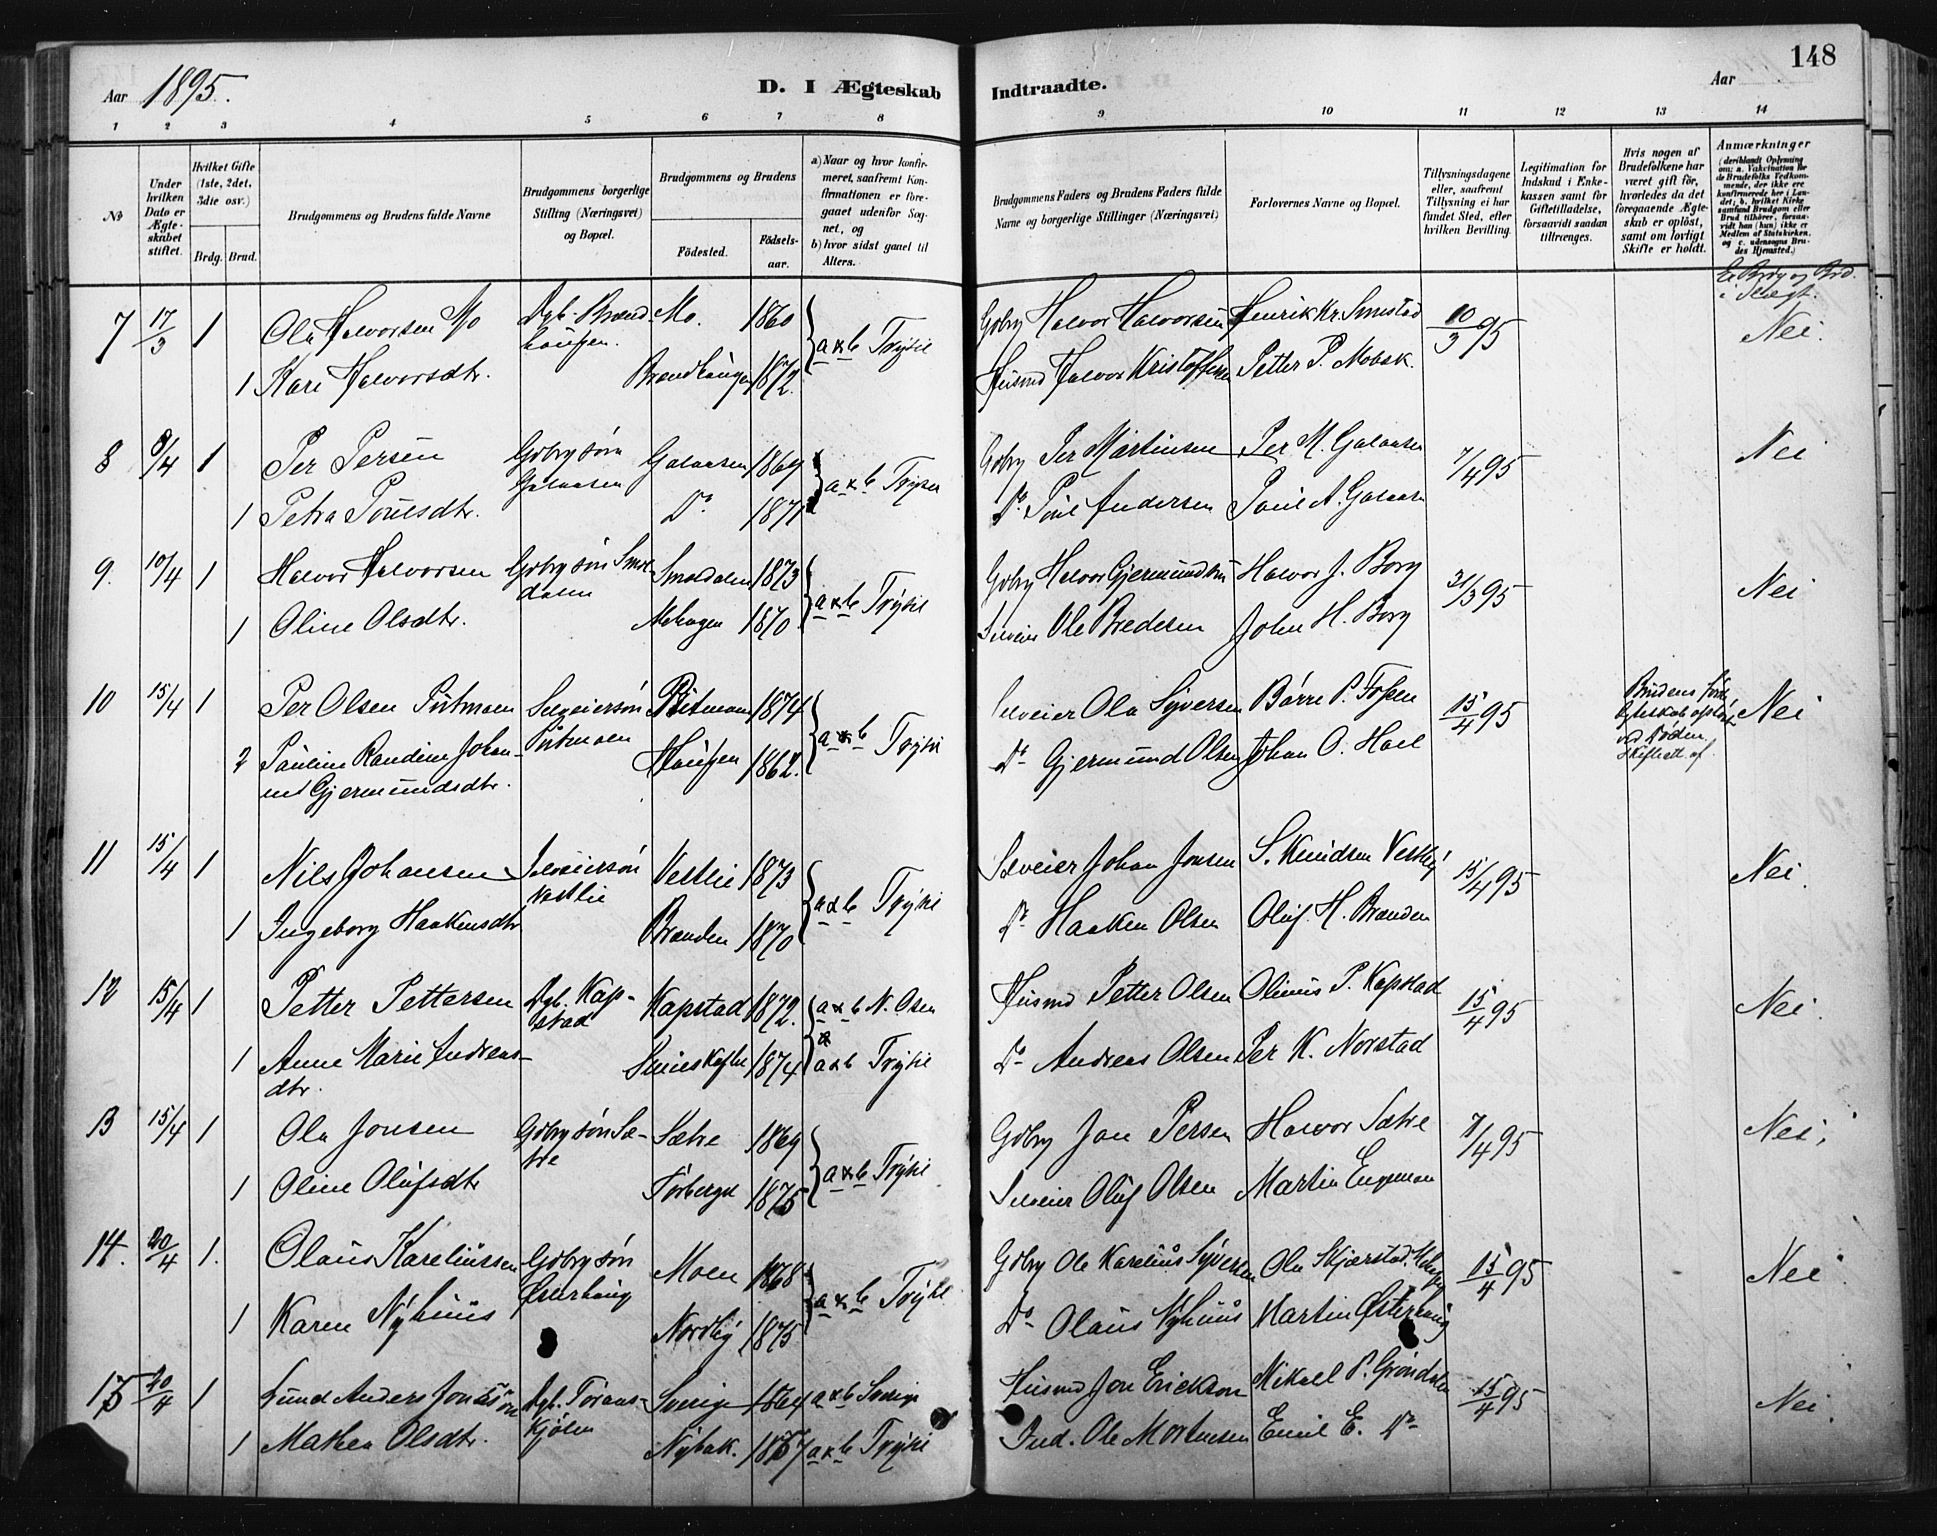 Aar 1895.
D. I Ægteskab Indtraadte.
Aar
148
1 2 3 4 5 6 7 8 9 10 11 12 13 14
№
Under hvilken Dato er Ægteskabet stiftet.
Hvilket Gifte (1ste, 2det, 3die osv.)
Brdg. Brud.
Brudgommens og Brudens fulde Navne
Brudgommens borgerlige Stilling (Næringsvei) og Bopæl.
Brudgommens og Brudens
Fødested.
Fødselsaar.
a) Naar og hvor konfirmeret, saafremt Konfirmationen er foregaaet udenfor Sognet, og
b) hvor sidst gaaet til Alters.
Brudgommens Faders og Brudens Faders fulde Navne og borgerlige Stillinger (Næringsvei)
Forlovernes Navne og Bopæl.
Tillysningsdagene eller, saafremt Tillysning ei har fundet Sted, efter hvilken Bevilling.
Legitimation for Indskud i Enkekassen samt for Giftetilladelse, forsaavidt saadan tiltrænges.
Hvis nogen af Brudefolkene har været gift før, hvorledes da det foregaaende Ægteskab er opløst, samt om lovligt Skifte er holdt.
Anmærkninger (deriblandt Oplysning om: a. Vakcination for de Brudefolks Vedkommende, der ikke ere konfirmerede her i Landet; b. hvilket Kirkesamfund Brudgom eller Brud tilhører, forsaavidt han (hun) ikke er Medlem af Statskirken, og c. udensogns Brudes Hjemsted.)
Er Brdg og Brd. i Slægt.
7 17/3 1 Ola Halvorsen Mo Dgb. Brændhaugen. Mo. 1860 a & b Trysil Gdbrg Halvor Halvorsen Henrik Kr. Smestad 10/3 95 Nei.
1 Kari Halvorsdtr. Brændhaugen 1872. Husmd Halvor Kristoffersen Petter P. Mobæk.
8 8/4 1 Per Persen Gdbrg søn Galaasen Galaasen 1869 a & b Trysil Gdbrg Per Martinsen Per M. Galaasen 7/4 95 Nei
1 Petra Poulsdtr. Do 1871 Do Poul Andersen Poul A. Galaasen
9. 10/4 1 Halvor Halvorsen Gdbrg søn Smoldalen Smoldalen 1873 a & b Trysil Gdbrg Halvor Gjermundsen Halvor J. Borg 31/3 95 Nei
1 Oline Olsdtr. Mohagen 1870 Selveier Ole Bredesen John H. Borg
10 15/4 1 Per Olsen Putmoen Selveiersøn Putmoen Putmoen 1874 a & b Trysil Selveier Ola Syversen Børre P. Fossen 15/4 95 Brudens førte Egteskab opløst ved Døden, Skifteatt. af. Nei
2 Pauline Randine Johanne Gjermundsdtr. Haugen 1862. Do Gjermund Olsen Johan O. Hoel
11 15/4 1 Nils Johansen Selveiersøn Vestlie Vestlie 1873 a & b Trysil Selveier Johan Jonsen S. Knudsen Vestby 15/4 95 Nei.
1 Ingeborg Haakensdtr Brænden 1870 Do Haaken Olsen Oluf H. Brænden
12 15/4 1 Petter Pettersen Dgb. Kapstad Kapstad 1872. a & b N. Osen Husmd Petter Olsen Olinus P. Kapstad 15/4 95 Nei.
1 Anne Marie Andreasdtr. 1874 a & b Trysil Do Andreas Olsen Per K. Norstad
13 15/4 1 Ola Jonsen Gdbrg søn Sætre Sætre 1869 a & b Trysil Gdbrg Jon Persen Halvor Sætre 7/4 95 Nei.
1 Oline Olufsdtr 1875 Selveier Oluf Olsen Martin Engemoen
14. 20/4 1. Olaus Kareliussen Gdbrg søn Østerhaug Moen 1868 a & b Trysil Gdbrg Ole Karelius Syversen Ola Skjærstad 15/4 95 Nei
1 Karen Nyhuus Nordby 1875 Do Olaus Nyhuus Martin Østerhaug
15 20/4 1 Lund Anders Jonsson Dgb. Kjølen Sverige 1864 a & b Sverige Husmd Jon Erickson Mikael P. Grøndalen 15/4 95 Nei.
1 Mathea Olsdtr. Nybak. 1867 a & b Trysil Ind. Ole Mortensen Emil E. Do